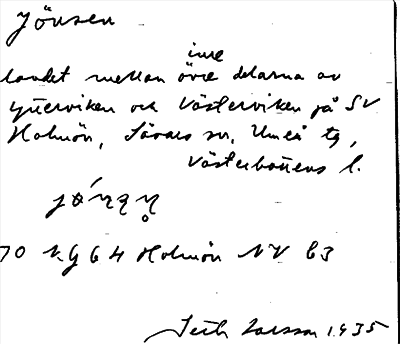 Jönsen
inre
landet mellan övre delarna av
Ytterviken och Västerviken på SV
Holmön, Sävars sn, Umeå tg,
Västerbottens l.
70 Holmön NV b3
Seth Larsson 1935